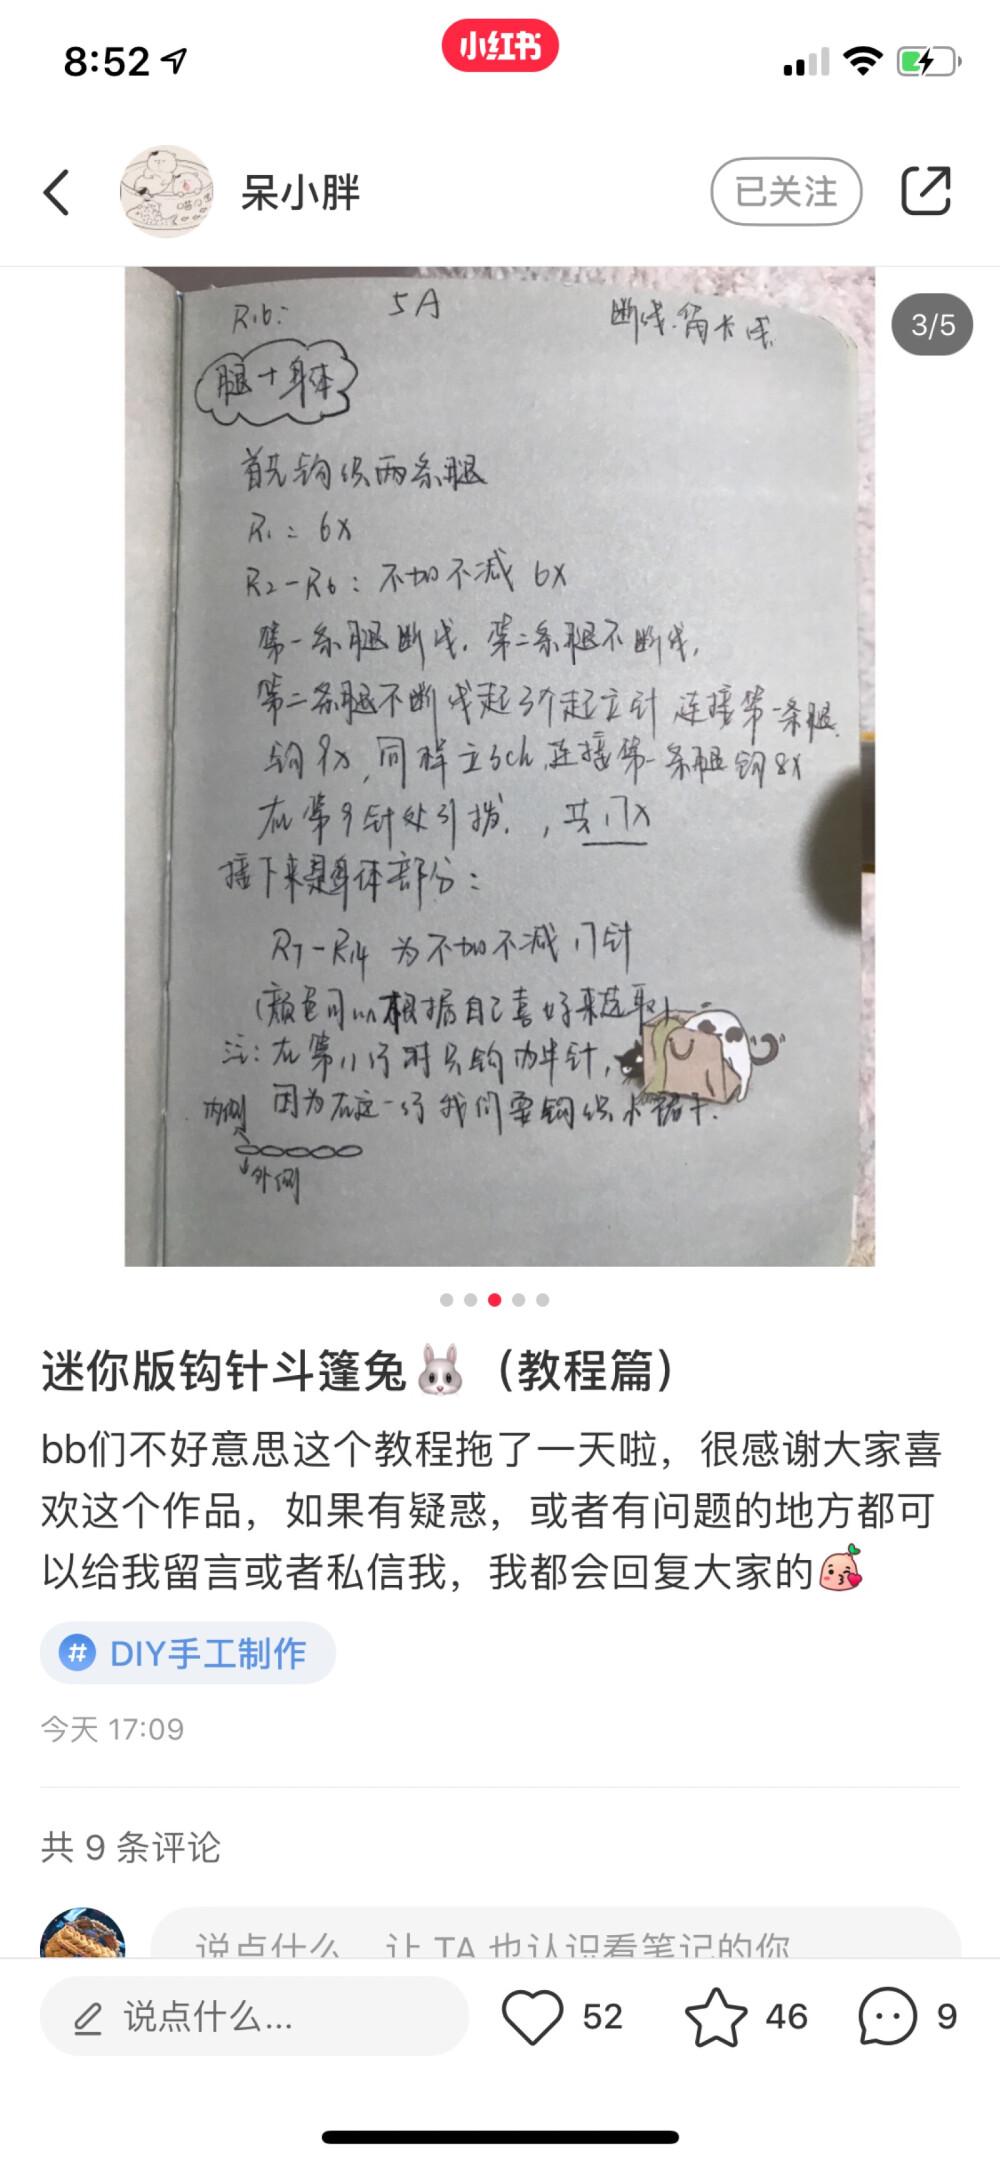 8:52
小红书
呆小胖
已关注
3/5
R16: 5A 断线.留长线
腿+身体
首先钩织两条腿
R1: 6X
R2-R6: 不加不减 6X
第一条腿断线, 第二条腿不断线,
第二条腿不断线起3个起立针 连接第一条腿
钩9X, 同样立3ch, 连接第一条腿钩8X
在第9针处引拔, 共17X
接下来是身体部分:
R7-R14 为不加不减 17针
(颜色可以根据自己喜好来选取)
注: 在第11行时只钩内半针,
内侧 因为在这一行我们要钩织小裙子.
外侧
迷你版钩针斗篷兔🐰（教程篇）
bb们不好意思这个教程拖了一天啦，很感谢大家喜
欢这个作品，如果有疑惑，或者有问题的地方都可
以给我留言或者私信我，我都会回复大家的
# DIY手工制作
今天 17:09
共 9 条评论
说点什么，让 TA 也认识看笔记的你
说点什么...
52
46
9